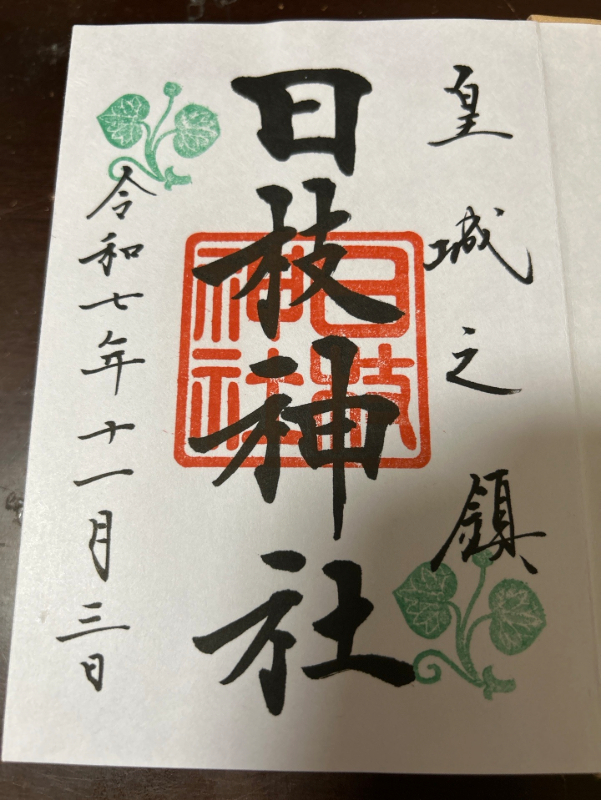 皇城之鎮
日枝神社
日枝神社
令和七年十一月三日